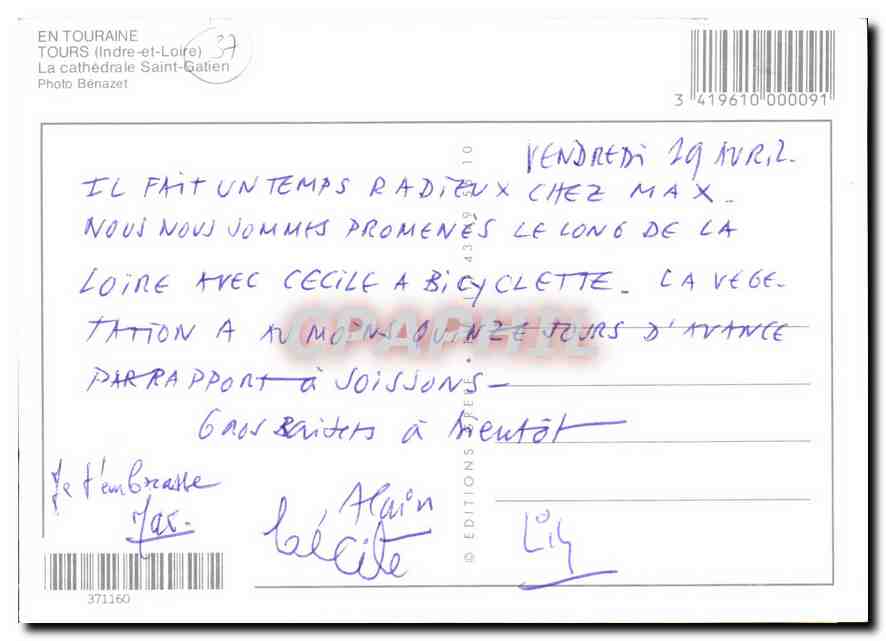 EN TOURAINE
TOURS (Indre-et-Loire)
37
La cathédrale Saint-Gatien
Photo Bénazet
3 419610 000091
VENDREDI 19 AVRIL.
IL FAIT UN TEMPS RADIEUX CHEZ MAX.
NOUS NOUS SOMMES PROMENÉS LE LONG DE LA
LOIRE AVEC CECILE A BICYCLETTE. LA VEGE-
TATION A AU MOINS QUINZE JOURS D'AVANCE
PAR RAPPORT à SOISSONS-
Gros Baisers à bientôt
Je t'embrasse
Max.
Alain
Cécile
Lily
© EDITIONS
10
371160
CPAPHIL